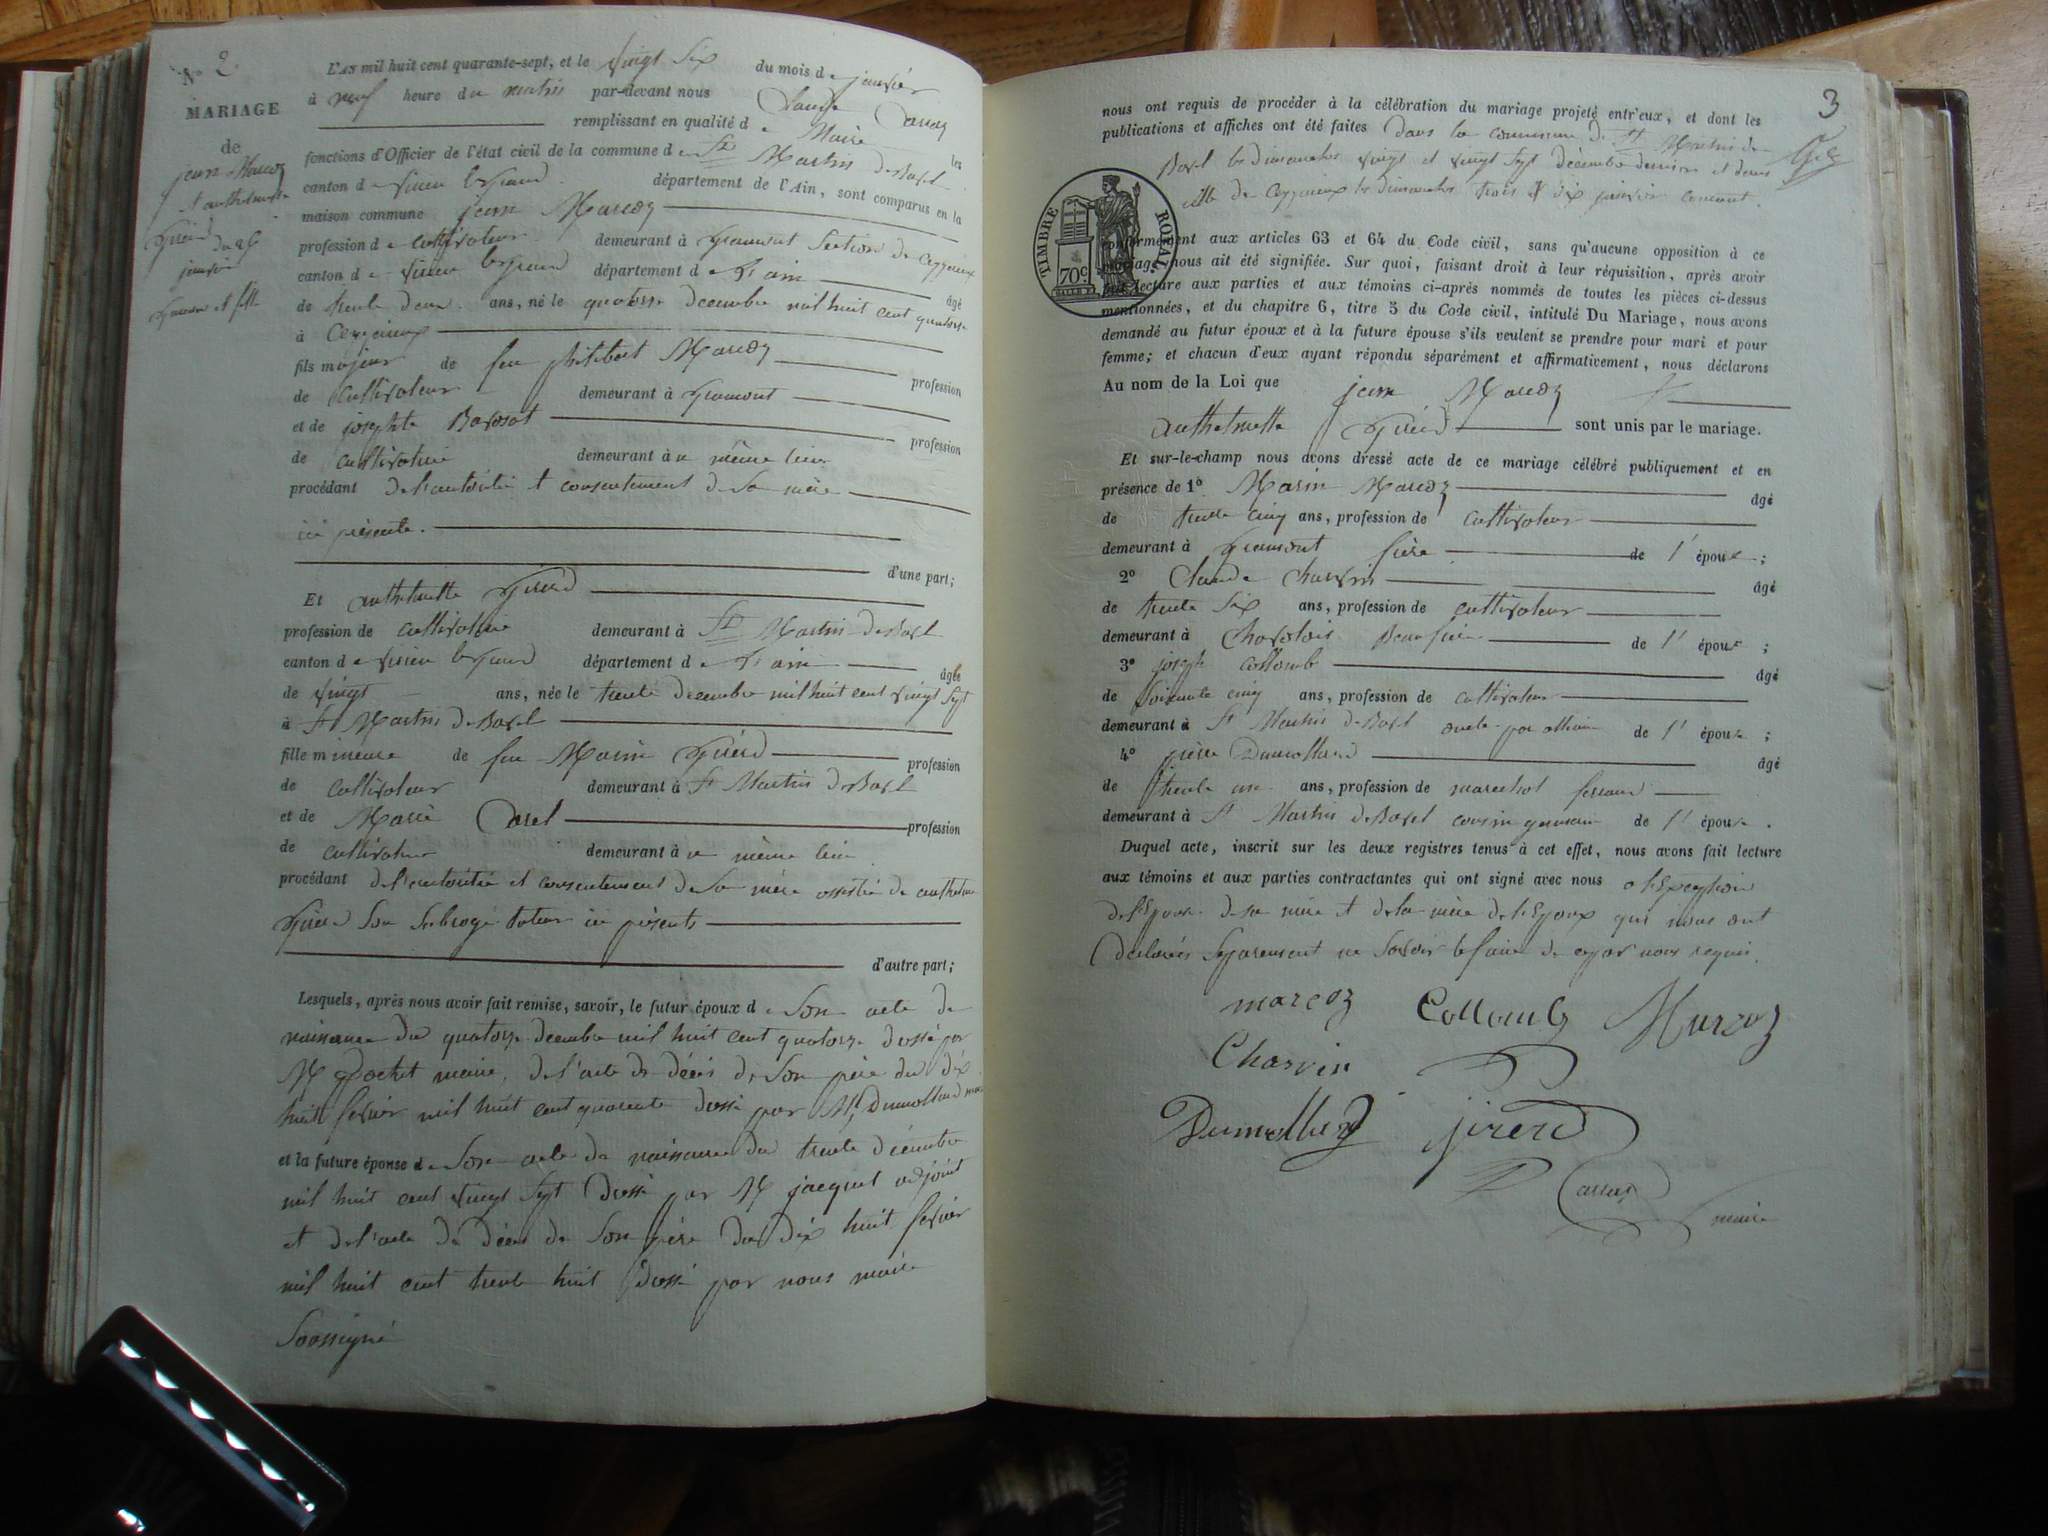 N° 2.
MARIAGE
de
jean Marcoz
et anthelmette
Girerd
du 26
janvier
garcon et fille
L'AN mil huit cent quarante-sept, et le vingt six du mois de janvier
à neuf heure du matin par-devant nous Claude Carraz
remplissant en qualité de Maire les
fonctions d'Officier de l'état civil de la commune de St Martin de Bavel
canton de virieu le grand département de l'Ain, sont comparus en la
maison commune jean Marcoz
profession de cultivateur demeurant à gramont Section de Ceyzerieux
canton de virieu le grand département de l'ain âgé
de trente deux ans, né le quatorze decembre mil huit cent quatorze
à Ceyzerieux
fils majeur de feu philibert Marcoz profession
de Cultivateur demeurant à gramont
et de josephte Bavosat profession
de cultivatrice demeurant à u même lieu
procédant de l'autorité et consentement de Sa mère
ici présente.
d'une part;
Et anthelmette Girerd
profession de cultivatrice demeurant à St Martin de Bavel
canton de virieu le grand département de l'ain âgée
de vingt ans, née le trente decembre mil huit cent vingt Sept
à St Martin de Bavel
fille mineure de feu Marin Girerd profession
de cultivateur demeurant à St Martin de Bavel
et de Marie Carel profession
de cultivatrice demeurant à u même lieu
procédant de l'autorité et consentement de Sa mère assistée de anthelme
Girerd Son Subrogé tuteur ici présents
d'autre part;
Lesquels, après nous avoir fait remise, savoir, le futur époux de Son acte de
naissance du quatorze decembre mil huit cent quatorze dressé par
M pochet maire, de l'acte de décès de Son père du dix
huit fevrier mil huit cent quarante dressé par M Dumolland maire
et la future épouse de Son acte de naissance du trente décembre
mil huit cent vingt Sept Dressé par M jacquet adjoint
et de l'acte de Décès de Son père du dix huit fevrier
mil huit cent trente huit Dressé par nous maire
Soussigné
3
nous ont requis de procéder à la célébration du mariage projeté entr'eux, et dont les
publications et affiches ont été faites dans la commune de St Martin de
Bavel les dimanches vingt et vingt Sept décembre dernier et dans
celle de Ceyzerieux les dimanches trois et dix janvier courant.
TIMBRE ROYAL
70c
conformément aux articles 63 et 64 du Code civil, sans qu'aucune opposition à ce
mariage nous ait été signifiée. Sur quoi, faisant droit à leur réquisition, après avoir
fait lecture aux parties et aux témoins ci-après nommés de toutes les pièces ci-dessus
mentionnées, et du chapitre 6, titre 5 du Code civil, intitulé Du Mariage, nous avons
demandé au futur époux et à la future épouse s'ils veulent se prendre pour mari et pour
femme; et chacun d'eux ayant répondu séparément et affirmativement, nous déclarons
Au nom de la Loi que jean Marcoz et
anthelmette Girerd sont unis par le mariage.
Et sur-le-champ nous avons dressé acte de ce mariage célébré publiquement et en
présence de 1° Marin Marcoz âgé
de trente cinq ans, profession de cultivateur
demeurant à gramont frère de l'époux;
2° Claude Charvin âgé
de trente Six ans, profession de cultivateur
demeurant à Charolois Beau frère de l'époux;
3° joseph collomb âgé
de Soixante cinq ans, profession de cultivateur
demeurant à St Martin de Bavel oncle par alliance de l'épouse;
4° pierre Dumolland âgé
de trente un ans, profession de marechal ferrand
demeurant à St Martin de Bavel cousin germain de l'épouse.
Duquel acte, inscrit sur les deux registres tenus à cet effet, nous avons fait lecture
aux témoins et aux parties contractantes qui ont signé avec nous a l'Exception
de l'Epouse de sa mère et de la mère de l'Epoux qui nous ont
Declarées Separement ne Savoir le faire de ce par nous requis.
marcoz Collomb Marcoz
Charvin
Dumolland jirerd
Carraz
maire